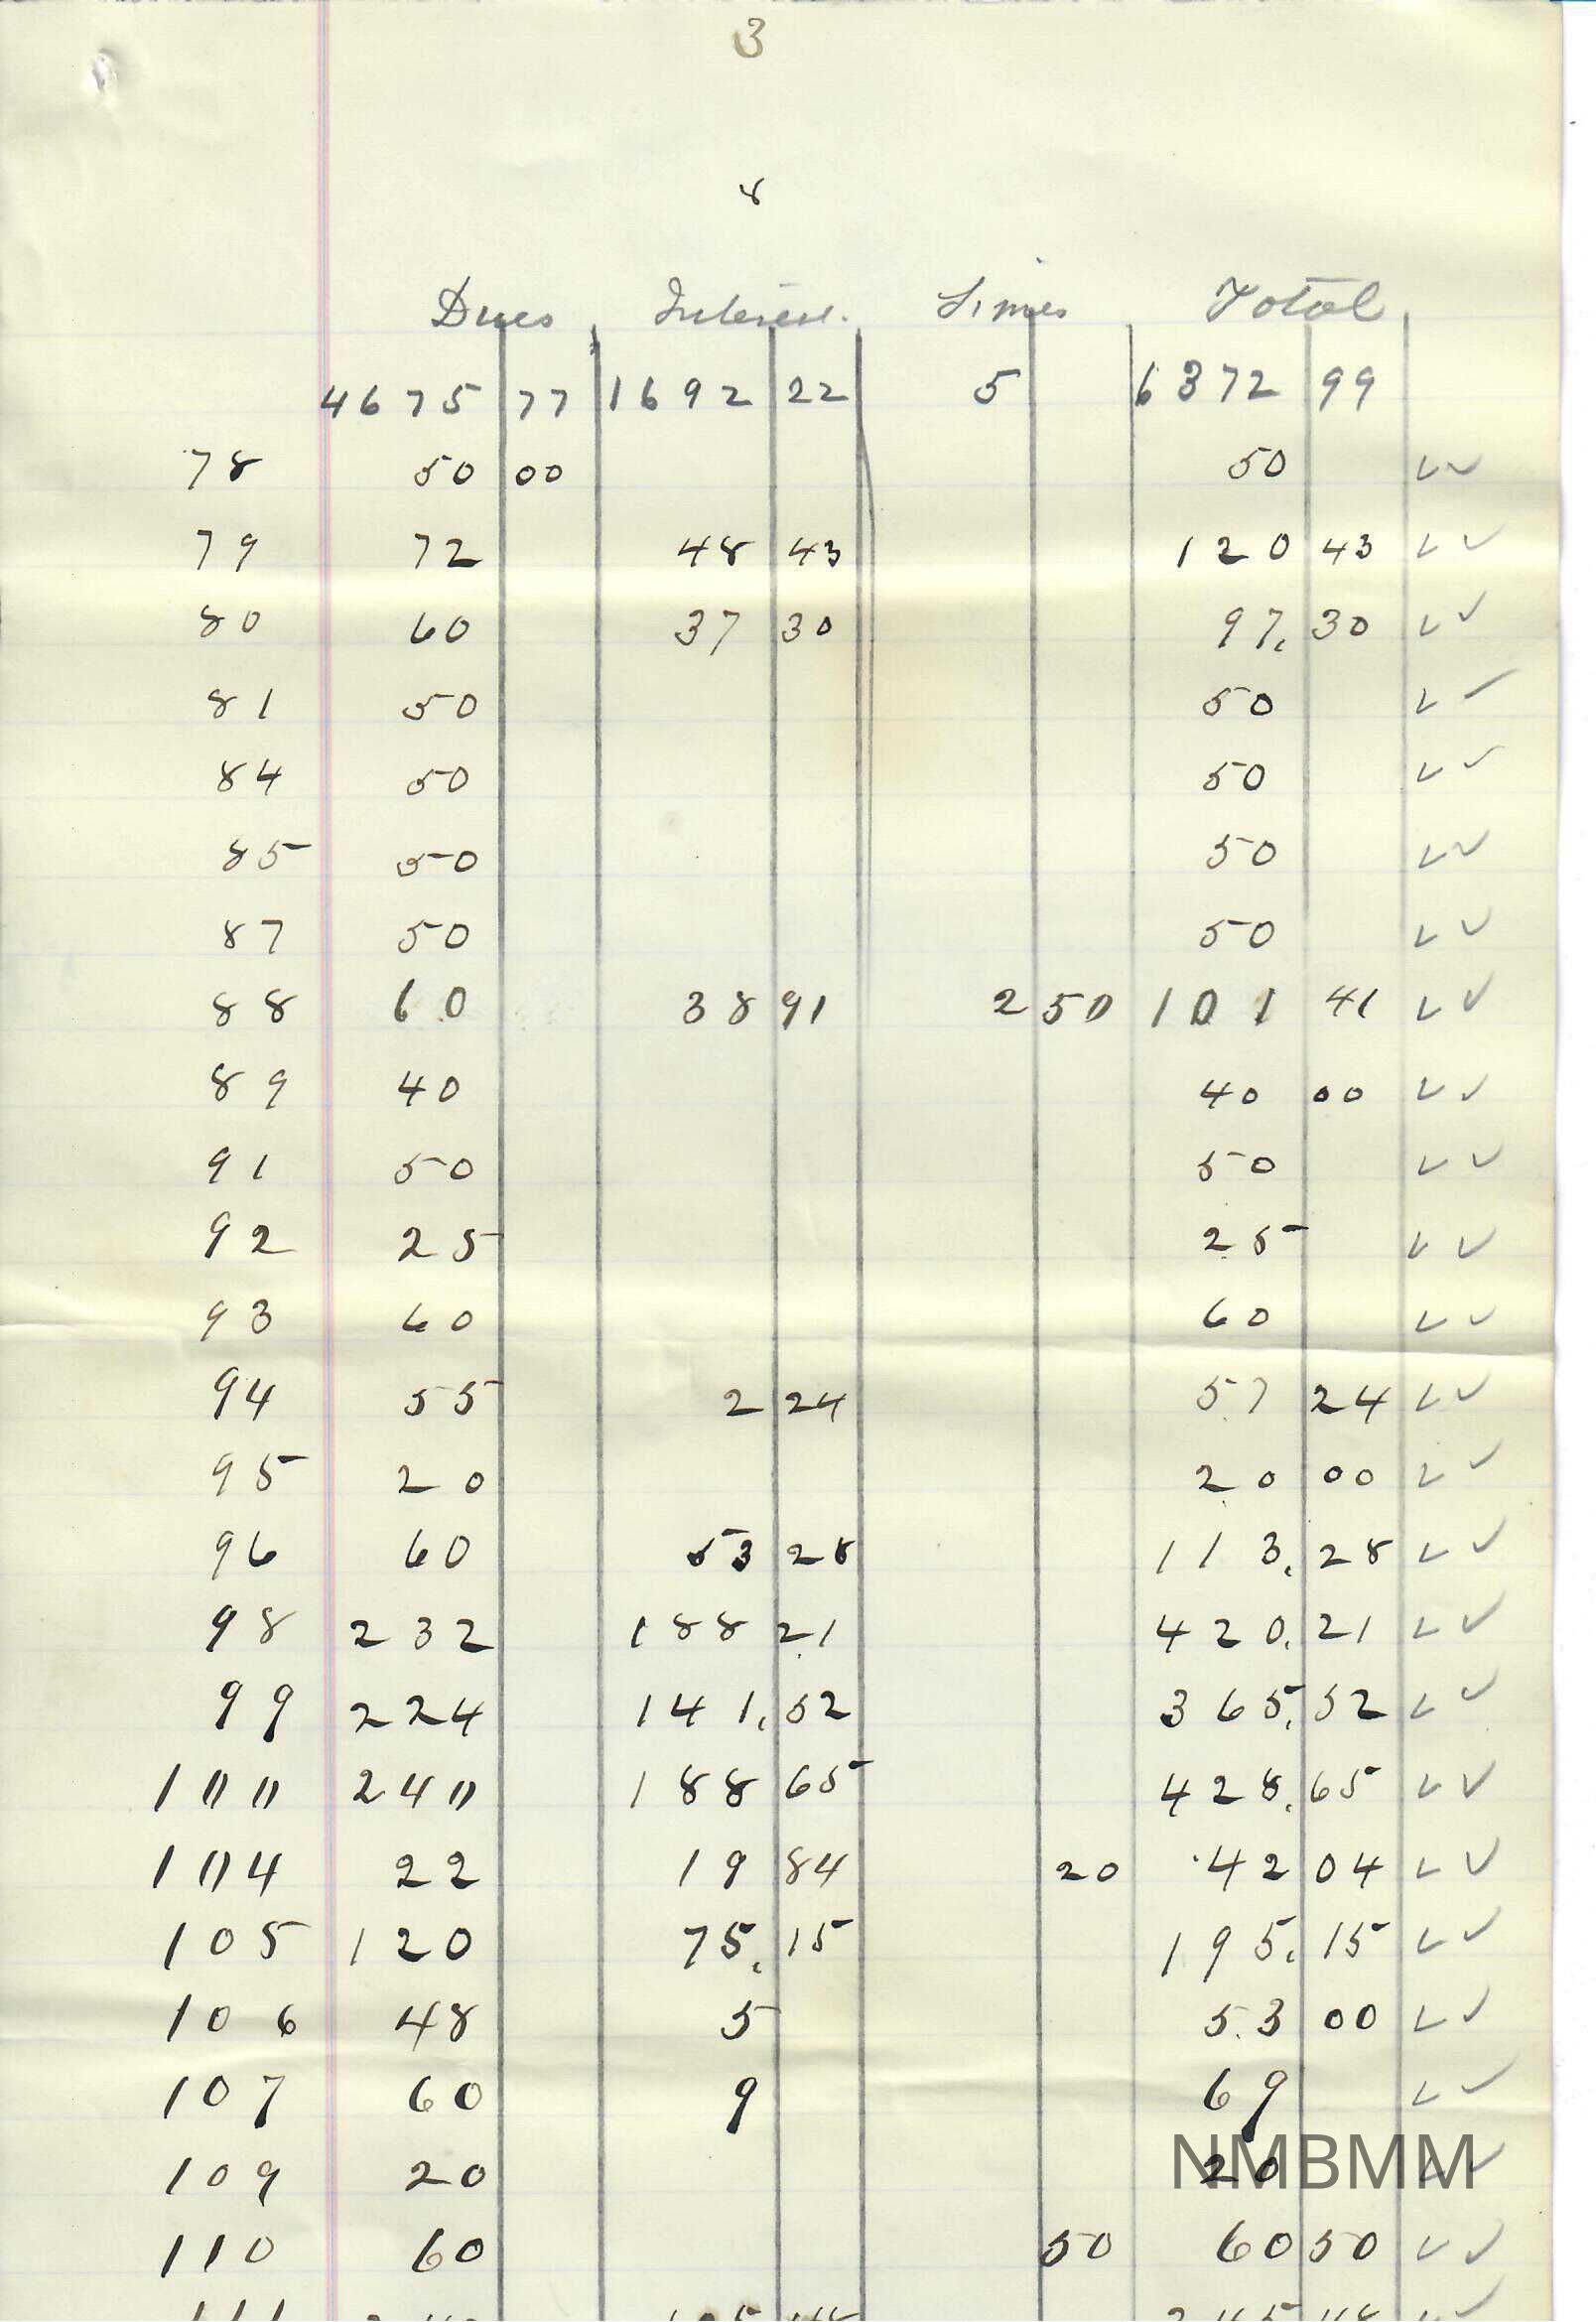 3
8
Dues Interest. Fines Total
4675 77 1692 22 5 6372 99
78 50 00 50
79 72 48 43 120 43
80 60 37 30 97. 30
81 50 50
84 50 50
85 50 50
87 50 50
88 60 38 91 2 50 101 41
89 40 40 00
91 50 50
92 25 25
93 60 60
94 55 2 24 57 24
95 20 20 00
96 60 53 28 113. 28
98 232 188 21 420. 21
99 224 141. 52 365. 52
100 240 188 65 428. 65
104 22 19 84 20 42 04
105 120 75. 15 195. 15
106 48 5 53 00
107 60 9 69
109 20 20
NMBMM
110 60 50 60 50
111